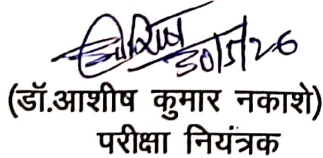 आशिष
30/5/26
(डॉ.आशीष कुमार नकाशे)
परीक्षा नियंत्रक